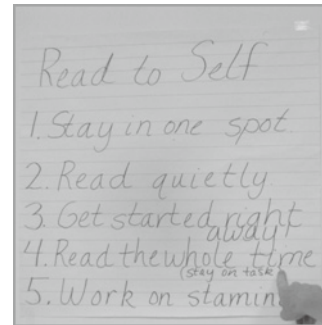 Read to Self
1. Stay in one spot
2. Read quietly
3. Get started right
away
4. Read the whole time
(stay on task)
5. Work on stamin